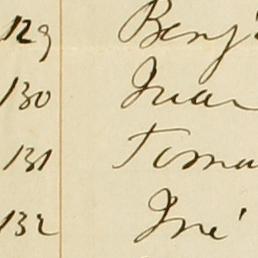 129 Benj
130 Juan
131 Toma
132 José